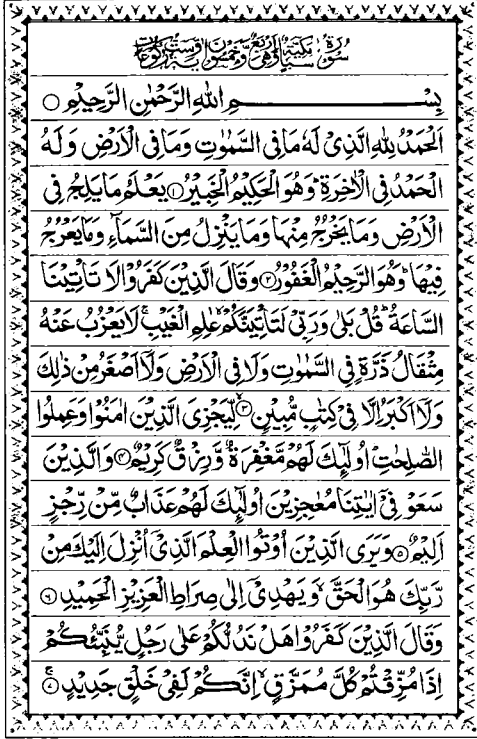 سُوْرَةُ سَبَاٍ مَكِّيَّةٌ وَّهِيَ اَرْبَعٌ وَّخَمْسُوْنَ اٰيَةً وَّسِتُّ رُكُوْعَاتٍ
بِسْمِ اللهِ الرَّحْمٰنِ الرَّحِيْمِ ○
اَلْحَمْدُ لِلّٰهِ الَّذِيْ لَهٗ مَا فِي السَّمٰوٰتِ وَمَا فِي الْاَرْضِ وَلَهُ
الْحَمْدُ فِي الْاٰخِرَةِ ؕ وَهُوَ الْحَكِيْمُ الْخَبِيْرُ ۝۱ يَعْلَمُ مَا يَلِجُ فِي
الْاَرْضِ وَمَا يَخْرُجُ مِنْهَا وَمَا يَنْزِلُ مِنَ السَّمَآءِ وَمَا يَعْرُجُ
فِيْهَا ؕ وَهُوَ الرَّحِيْمُ الْغَفُوْرُ ۝۲ وَقَالَ الَّذِيْنَ كَفَرُوْا لَا تَاْتِيْنَا
السَّاعَةُ ؕ قُلْ بَلٰى وَرَبِّيْ لَتَاْتِيَنَّكُمْ ۙ عٰلِمِ الْغَيْبِ ۚ لَا يَعْزُبُ عَنْهُ
مِثْقَالُ ذَرَّةٍ فِي السَّمٰوٰتِ وَلَا فِي الْاَرْضِ وَلَاۤ اَصْغَرُ مِنْ ذٰلِكَ
وَلَاۤ اَكْبَرُ اِلَّا فِيْ كِتٰبٍ مُّبِيْنٍ ۝۳ ۙ لِّيَجْزِيَ الَّذِيْنَ اٰمَنُوْا وَعَمِلُوا
الصّٰلِحٰتِ ؕ اُولٰٓئِكَ لَهُمْ مَّغْفِرَةٌ وَّرِزْقٌ كَرِيْمٌ ۝۴ وَالَّذِيْنَ
سَعَوْ فِيْۤ اٰيٰتِنَا مُعٰجِزِيْنَ اُولٰٓئِكَ لَهُمْ عَذَابٌ مِّنْ رِّجْزٍ
اَلِيْمٌ ۝۵ وَيَرَى الَّذِيْنَ اُوْتُوا الْعِلْمَ الَّذِيْۤ اُنْزِلَ اِلَيْكَ مِنْ
رَّبِّكَ هُوَ الْحَقَّ ۙ وَيَهْدِيْۤ اِلٰى صِرَاطِ الْعَزِيْزِ الْحَمِيْدِ ۝۶
وَقَالَ الَّذِيْنَ كَفَرُوْا هَلْ نَدُلُّكُمْ عَلٰى رَجُلٍ يُّنَبِّئُكُمْ
اِذَا مُزِّقْتُمْ كُلَّ مُمَزَّقٍ ۙ اِنَّكُمْ لَفِيْ خَلْقٍ جَدِيْدٍ ۝۷ ۚ